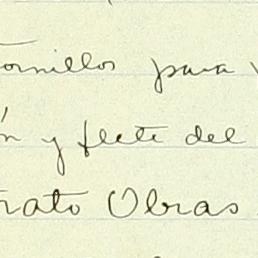 ornillos para
n y flete del
rato Obras